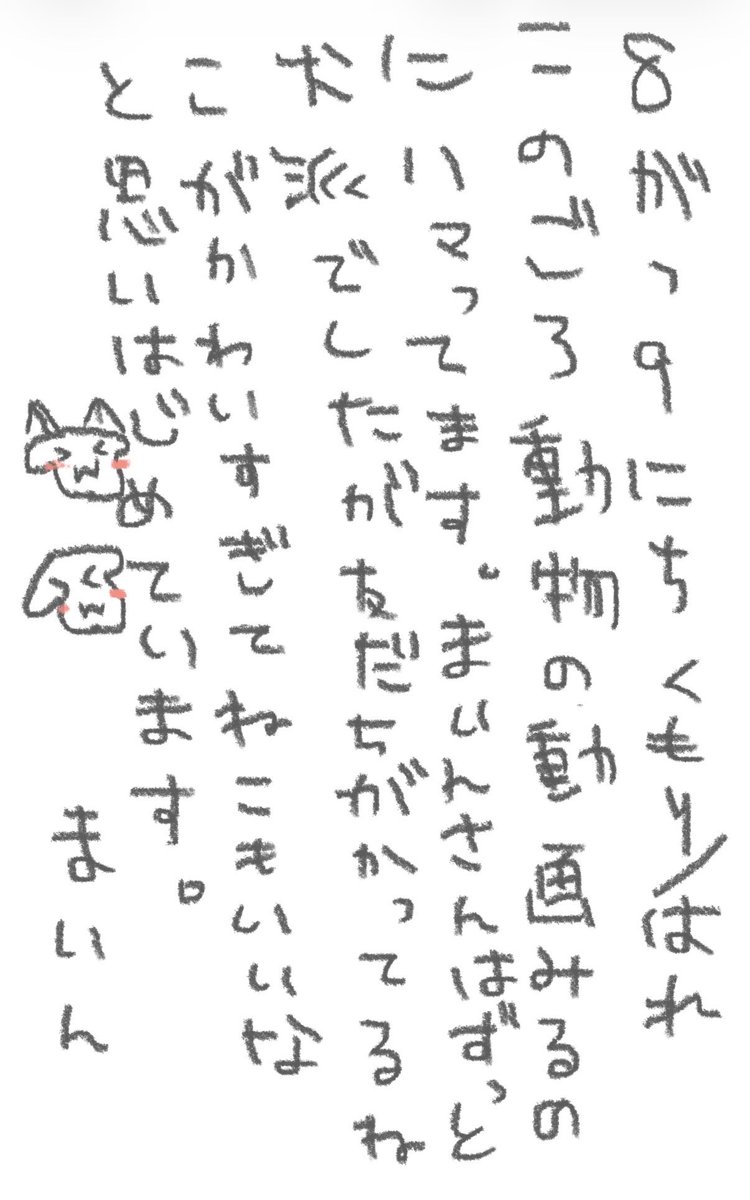 8がつ9にちくもり/はれ
ここのごろ動物の動画みるの
にハマってます。まいんさんはずっと
犬派でしたがともだちがかってるね
こがかわいすぎてねこもいいな
と思いはじめています。
まいん